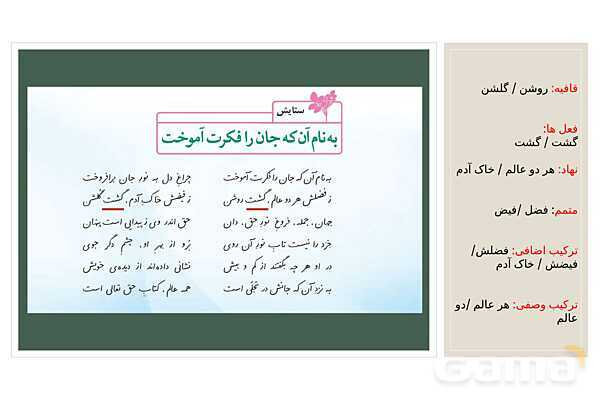 ستایش
به نام آن که جان را فکرت آموخت
به نام آن که جان را فکرت آموخت چراغ دل به نور جان برافروخت
ز فضلش هر دو عالم، گشت روشن ز فیضش خاک آدم، گشت گلشن
جهان، جمله، فروغ نور حق، دان حق اندر وی ز پیدایی است پنهان
خرد را نیست تاب نور آن روی برو از بهر او، چشم دگر جوی
در او هر چه بگفتند از کم و بیش نشانی داده‌اند از دیده‌ی خویش
به نزد آن که جانش در تجلّی است همه عالم، کتاب حق تعالی است
قافیه: روشن / گلشن
فعل ها:
گشت / گشت
نهاد: هر دو عالم / خاک آدم
متمم: فضل /فیض
ترکیب اضافی: فضلش/
فیضش / خاک آدم
ترکیب وصفی: هر عالم /دو
عالم
Gama